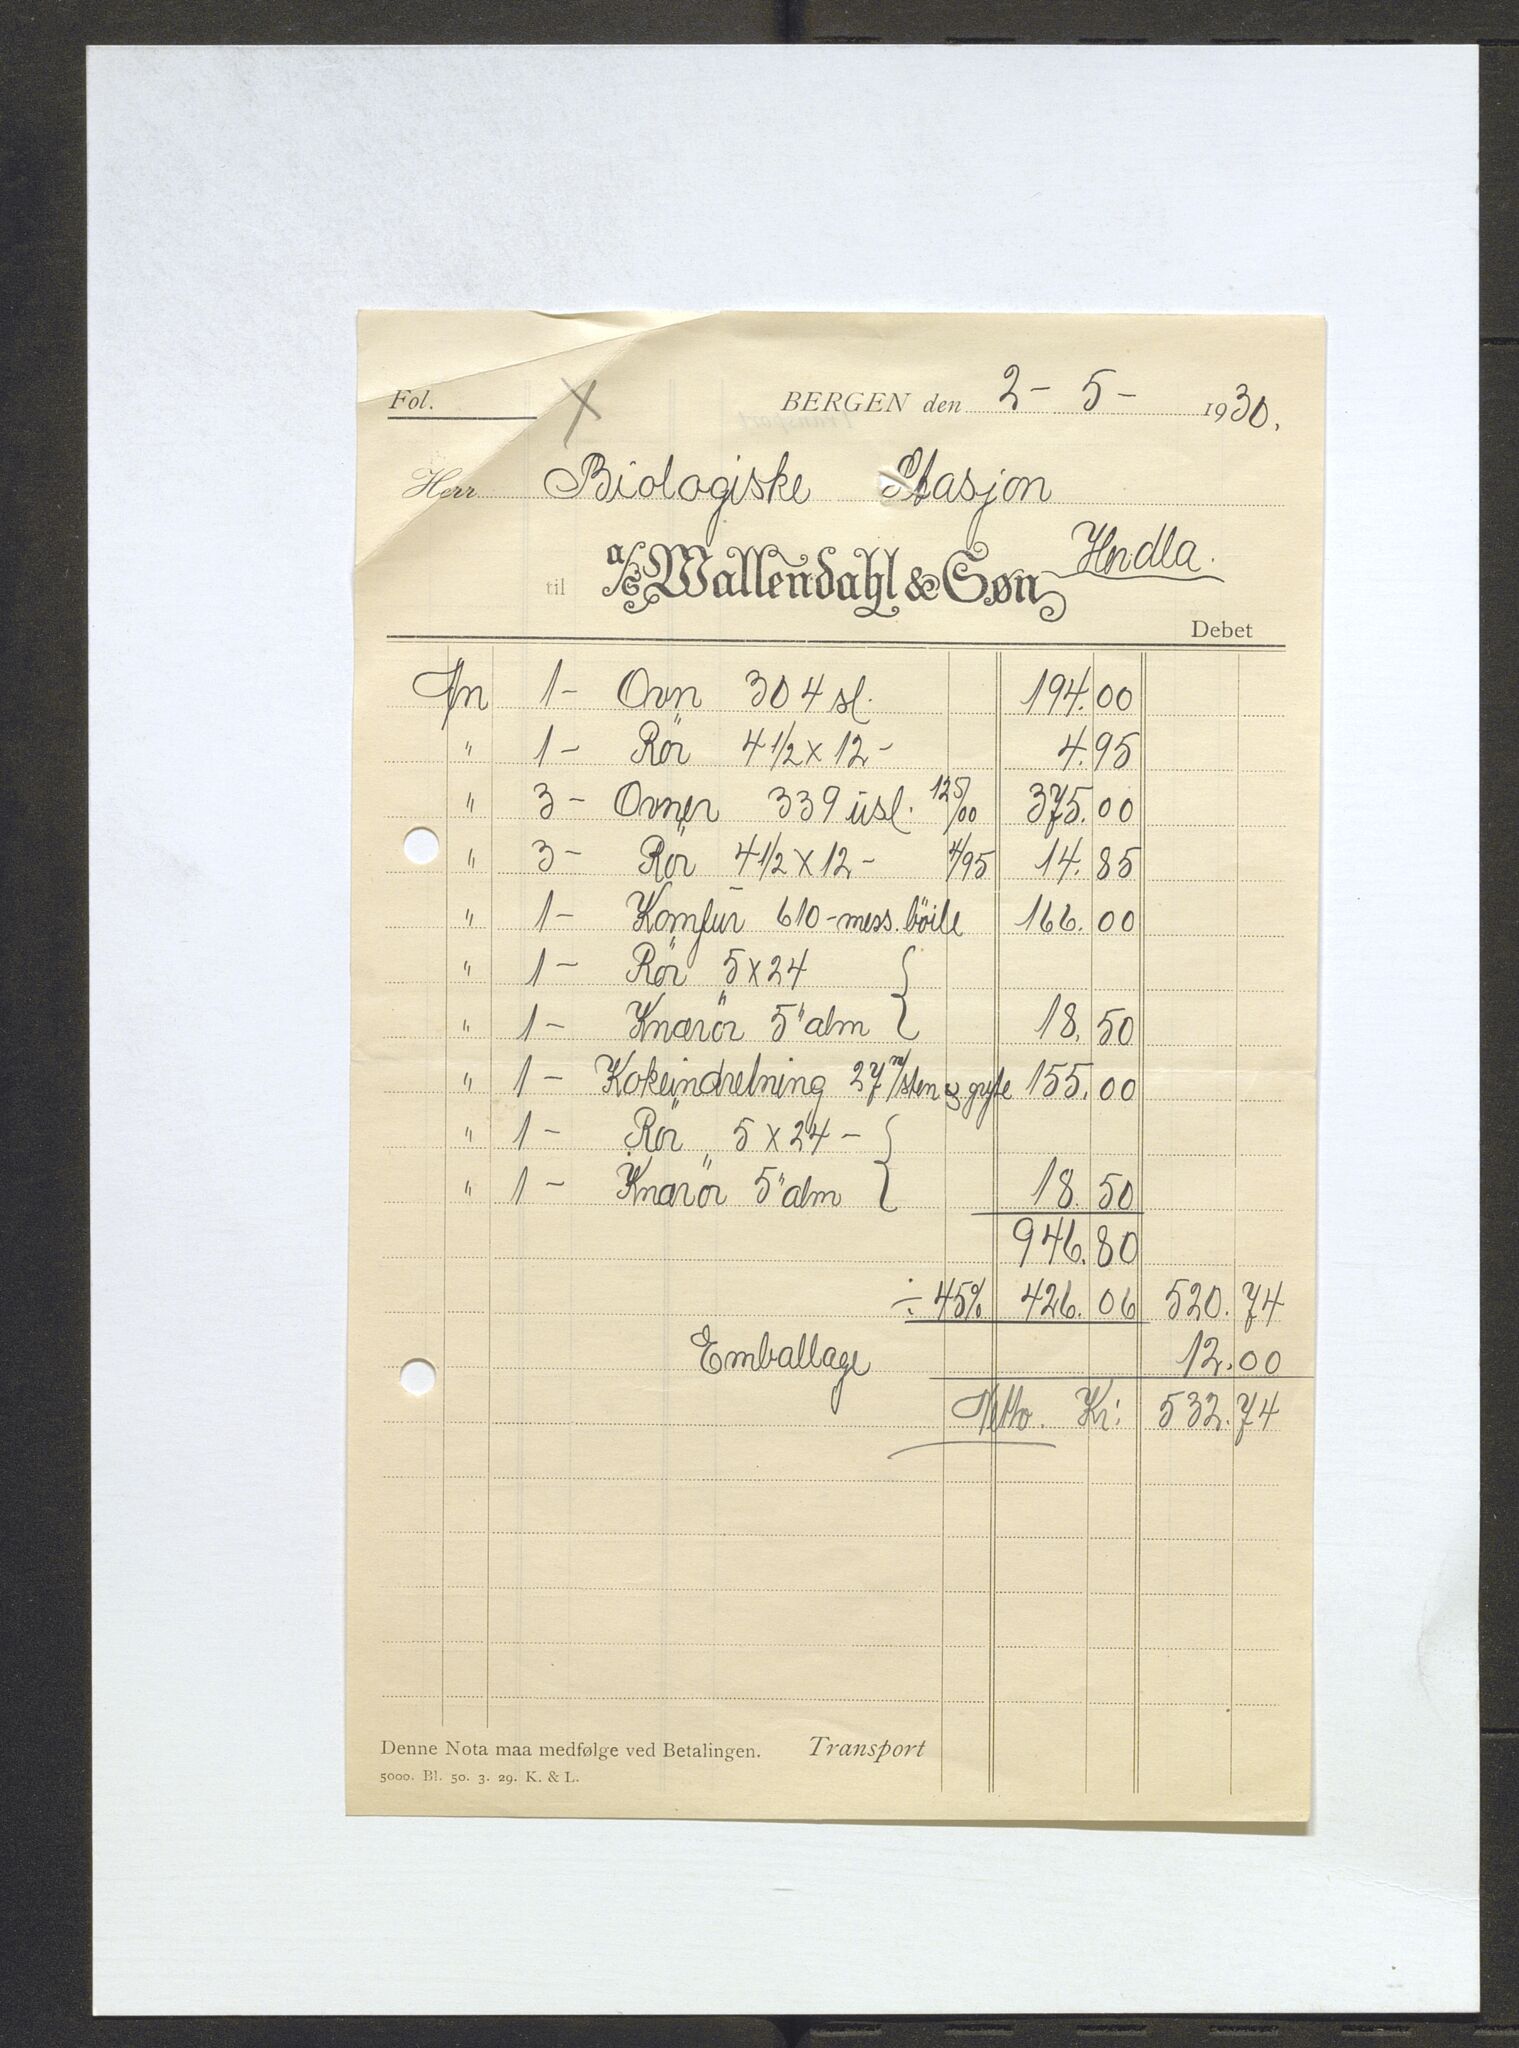 Fol. X BERGEN den 2 - 5 - 1930.
Herr Biologiske Stasjon
Herdla.
til A/S Wallendahl & Søn
Debet
An 1 - Ovn 304 sl. 194.00
" 1 - Rör 4 1/2 x 12 - 4.95
" 3 - Ovner 339 usl. 125/00 375.00
" 3 - Rör 4 1/2 x 12 - 4/95 14.85
" 1 - Komfur 610 - mess. böile 166.00
" 1 - Rör 5 x 24
" 1 - Knærör 5" alm 18.50
" 1 - Kokeindretning 27 m/sten og gryte 155.00
" 1 - Rör 5 x 24 -
" 1 - Knærör 5" alm 18.50
946.80
÷ 45% 426.06 520.74
Emballage 12.00
Netto. Kr: 532.74
Denne Nota maa medfølge ved Betalingen. Transport
5000. Bl. 50. 3. 29. K. & L.